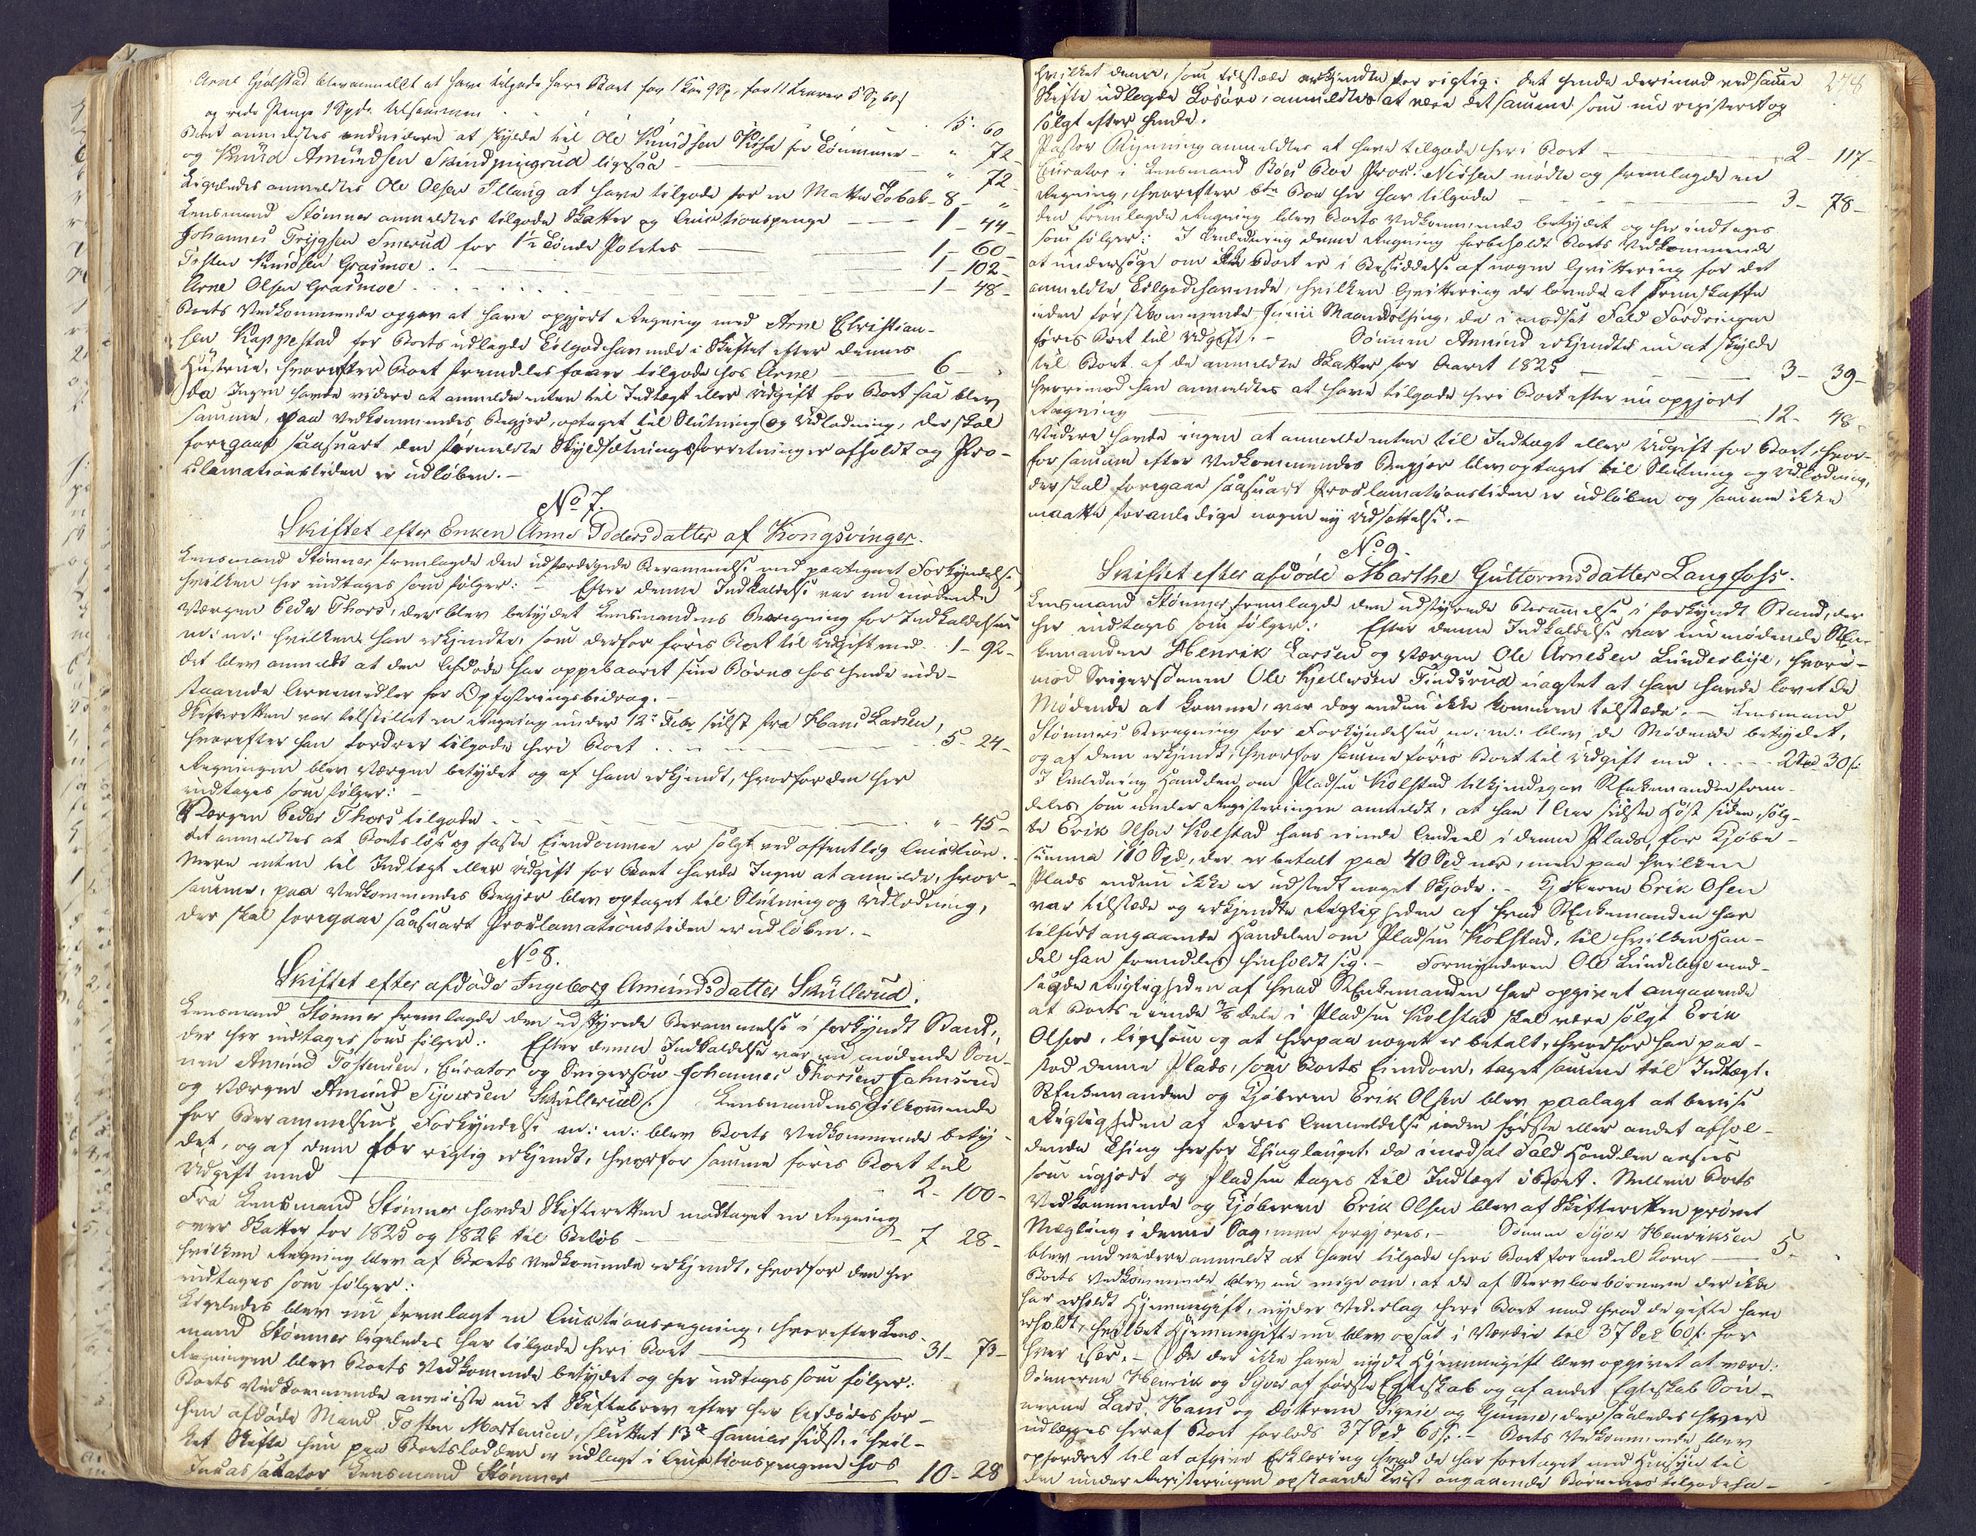 Arne Gjølstad blev anmeldt at have tilgode heri Boet for 1 Koe 9 Sp, for 11 Leveer 5 Sp 60 s
og rede Penge 1 Spd. tilsammen 15. 60
Boet anmeldtes endvidere at skylde til Ole Knudsen for Tømmer - " 72 -
og Knud Amundsen ligesaa - " 72 -
Ligeledes anmeldtes Ole Olsen at have tilgode for en Matte Tobak - 8 - "
Lensmand Stømner anmeldtes tilgode Skatter og Auctionspenge - 1 - 44 -
Johannes Trygsen Smerud for 1½ Tønde Potetes - 1 - 60 -
Tosten Knudsen Grasmoe - 1 - 102 -
Arne Olsen Grasmoe - 1 - 48 -
Boets Vedkommende opgav at have opgjort Regning med Arne Christian-
sen Kappestad for Boets udlagde Tilgodehavende i Skiftet efter dennes
Hustrue, hvorefter Boet fremdeles faaer tilgode hos Arne - 6 - "
Da Ingen havde videre at anmelde enten til Indtægt eller Udgift for Boet saa blev
samme, paa Vedkommendes Begjær, optaget til Slutning og Udlodning, der skal
foregaae saasnart den formeldte Skyldsætningsforretning er afholdt og Pro-
clamationstiden er udløben. -
No 7.
Skiftet efter Enken Anne Pedersdatter af Kongsvinger.
Lensmand Stømner fremlagde den udfærdigede Berammelse med paategnet Forkyndelse
hvilken her indtages som følger: - Efter denne Indkaldelse var nu mødende
Værgen Peder Thors, der blev betydet Lensmandens Beregning for Indkaldelsen
m: m: hvilken han erkjendte, som derfor føres Boet til Udgift med. 1 - 92 -
Det blev anmeldt at den Afdøde har oppebaaret sine Børns hos hende inde-
staaende Arvemidler for Opfostringsbidrag. -
Skifteretten var tilstillet en Regning under 12te Febr sidst fra Hans Larsen,
hvorefter han fordrer tilgode heri Boet 5 - 24 -
Regningen blev Værgen betydet og af ham erkjendt, hvorfor den her
indtages som følger: -
Værgen Peder Thors tilgode " - 45 -
Det anmeldtes at Boets løse og faste Eiendomme er solgt ved offentlig Auction.
Mere enten til Indtægt eller Udgift for Boet havde Ingen at anmelde, hvor-
samme, paa Vedkommendes Begjær blev optaget til Slutning og Udlodning,
der skal foregaae saasnart Proclamationstiden er udløben. -
No 8.
Skiftet efter afdøde Ingeborg Amundsdatter Skullerud.
Lensmand Stømner fremlagde den udstyrede Berammelse i forkyndt Stand,
der her indtages som følger: Efter denne Indkaldelse var nu mødende Søn-
nen Amund Tostensen, Curator og Svigersøn Johannes Thorsen
og Værgen Amund Syversen Skullerud. Lensmandens Tilkommende
for Berammelsens Forkyndelse m: m: blev Boets Vedkommende bety-
det, og af dem for rigtig erkjendt, hvorfor samme føres Boet til
Udgift med 2 - 100 -
Fra Lensmand Stømner havde Skifteretten modtaget en Regning
over Skatter for 1825 og 1826 til Beløb - 7 28 -
hvilken Regning blev af Boets Vedkommende erkjendt, hvorfor den her
indtages som følger:
Ligeledes blev nu fremlagt en Auctionsregning, hvorefter Lens-
mand Stømner ligeledes har tilgode heri Boet - 31 - 73 -
Regningen blev Boets Vedkommende betydet og her indtages som følger:
Boets Vedkommende anviiste nu et Skiftebrev efter her Afdødes for-
hen afdøde Mand Tosten Mortensen, sluttet 13de Januar sidst, i hvil-
ket Skifte her paa Boetslodden er udlagt i Auctionspengene hos
Incassator Lensmand Stømner 10 - 28
278
hvilket denne, som tilstæde erkjendte for rigtig. Det hende derimod ved samme
Skifte udlagde Løsøre, anmeldtes at være det samme som nu registeret og
solgt efter hende.
Pastor Rynning anmeldtes at have tilgode heri Boet - 2 - 117 -
Curator i Lensmand Boes Boe Proc: Nissen mødte og fremlagde en
Regning, hvorefter Boe her har tilgode - 3 - 78 -
Den fremlagde Regning blev Boets Vedkommende betydet og her indtages
som følger: I Anledning denne Regning forbeholdt Boets Vedkommende
at undersøge om Boet er i Besiddelse af nogen Qvittering for det
anmeldte Tilgodehavende, hvilken Qvittering de lovede at fremskaffe
inden førstkommende Junii Maanedsthing, da i modsat Fald Fordringen
føres Boet til Udgift. - Sønnen Amund erkjendte nu at skylde
til Boet af de anmeldte Skatter for Aaret 1825 - 3 - 39 -
hvorimod han anmeldtes at have tilgode heri Boet efter nu opgjort
Regning - 12 - 48 -
Videre havde ingen at anmelde enten til Indtægt eller Udgift for Boet, hvor-
for samme efter Vedkommendes Begjær blev optaget til Slutning og Udlodning,
der skal foregaae saasnart Proclamationstiden er udløben og samme ikke
maatte foranledige nogen ny Udsættelse. -
No 9.
Skiftet efter afdøde Marthe Guttormsdatter Langfoss.
Lensmand Stømner fremlagde den udstyrede Berammelse i forkyndt Stand, der
her indtages som følger: Efter denne Indkaldelse var nu mødende En-
kemanden Henrik Larsen og Værgen Ole Arnesen Lundebye, hvori-
mod Svigersønnen Ole Kjeldsen Findsrud uagtet at han havde lovet de
Mødende at komme, var dog endnu ikke kommen tilstæde. - Lensmand
Stømners Beregning for Forkyndelsen m: m: blev de Mødende betydet,
og af dem erkjendt, hvorfor samme føres Boet til Udgift med 2 Spd 30 s.
I Anledning Handelen om Pladsen Kolstad tilkjendegav Enkemanden frem-
deles som under Registeringen anmeldt, at han 1 Aar sidste Høst siden solg-
te Erik Olsen Kolstad hans eiende Andeel i denne Plads, for Kjøbe-
summa 110 Spd, der er betalt paa 40 Spd nær, men paa hvilken
Plads endnu ikke er udstedt noget Skjøde. - Kjøberen Erik Olsen
var tilstæde og erkjendte Rigtigheden af hvad Enkemanden har
tilført angaaende Handelen om Pladsen Kolstad, til hvilken Han-
del han fremdeles henholdt sig. - Formynderen Ole Lundebye mod-
sagde Rigtigheden af hvad Enkemanden har opgivet angaaende
at Boets eiende Dele i Pladsen Kolstad skal være solgt Erik
Olsen, ligesom og at herpaa noget er betalt, hvorfor han paa-
stod denne Plads, som Boets Eiendom, taget samme til Indtægt.
Enkemanden og Kjøberen Erik Olsen blev paalagt at bevise
Rigtigheden af deres Anmeldelse inden første eller andet afhol-
dende Thing her for Thinglauget, da i modsat Fald Handelen ansees
som ugjort og Pladsen tages til Indtægt i Boet. Mellem Boets
Vedkommende og Kjøberen Erik Olsen blev af Skifteretten prøvet
Mægling i denne Sag, men forgjæves. - Sønnen Syver Henriksen
blev endvidere anmeldt at have tilgode heri Boet for endeel Korn - 5 -
Boets Vedkommende blev nu enige om, at de af Sterbboebørnene der ikke
har erholdt Hjemmegift, nyder Vederlag heri Boet mod hvad de gifte have
erholdt, hvilket Hjemmegifte nu blev opsat i Værdie til 37 Spd 60 s. for
hver især. - De der ikke have nydt Hjemmegift blev opgivet at være:
Sønnerne Henrik og Syver af første Egteskab og af andet Egteskab Søn-
nerne Lars, Hans og Døttrene Signe og Gunne, der saaledes hver
udlægges heraf Boet forlods 37 Spd 60 s. - Boets Vedkommende blev
opfordret til at afgive Erklæring hvad de har foretaget med Hensyn til
den under Registeringen opstaaede Tvist angaaende Børnenes tilgodeha-